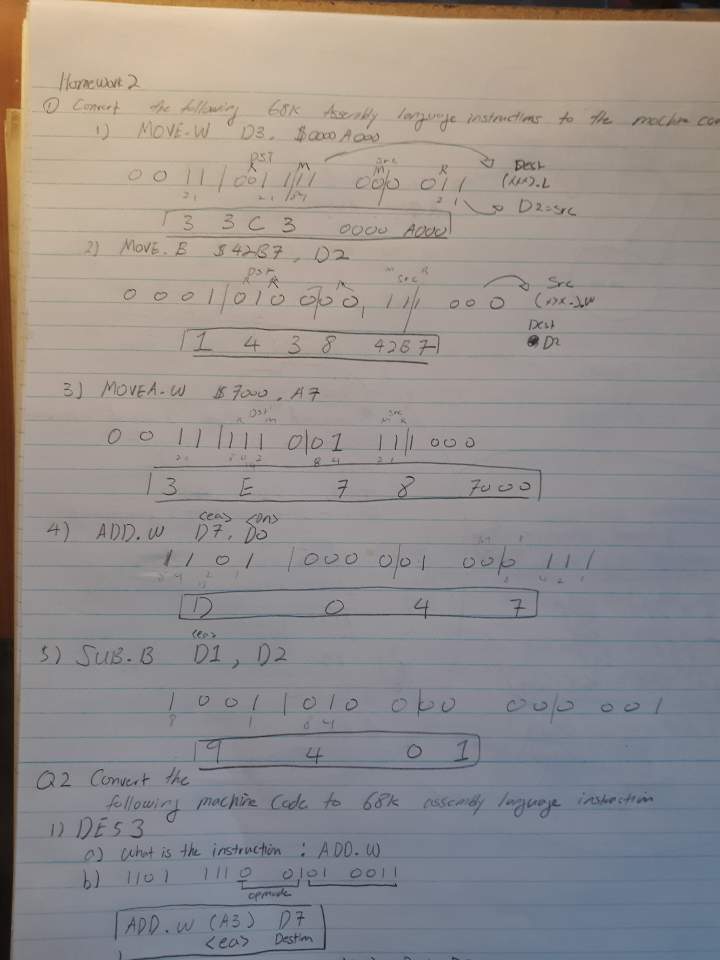 Homework 2
① Convert the following 68K Assembly language instructions to the machine co
1) MOVE.W D3, $0000A000
DST src
R M M R Dest
0 0 1 1 | 0 0 1 1 1 1 0 0 0 0 1 1 (xxx).L
2 1 2 1 8 4 2 1 D2=src
3 3 C 3 0000 A000
2) MOVE.B $42B7, D2
DST M src R
0 0 0 1 | 0 1 0 0 0 0, 1 1 1 0 0 0 Src
(xxx).W
Dest
D2
1 4 3 8 42B7
3) MOVEA.W $7000, A7
R DST M src M R
0 0 1 1 | 1 1 1 0 0 1 1 1 1 0 0 0
3 E 7 8 7000
<ea> <Dn>
4) ADD.W D7, D0
1 1 0 1 | 0 0 0 0 0 1 0 0 0 1 1 1
D 0 4 7
<ea>
5) SUB.B D1, D2
1 0 0 1 | 0 1 0 0 0 0 0 0 0 0 0 1
8 1 8 4
9 4 0 1
Q2 Convert the
following machine Code to 68K assembly language instruction
1) DE53
a) What is the instruction : ADD.W
b) 1101 1110 0101 0011
opmode
ADD.W (A3) D7
<ea> Destin